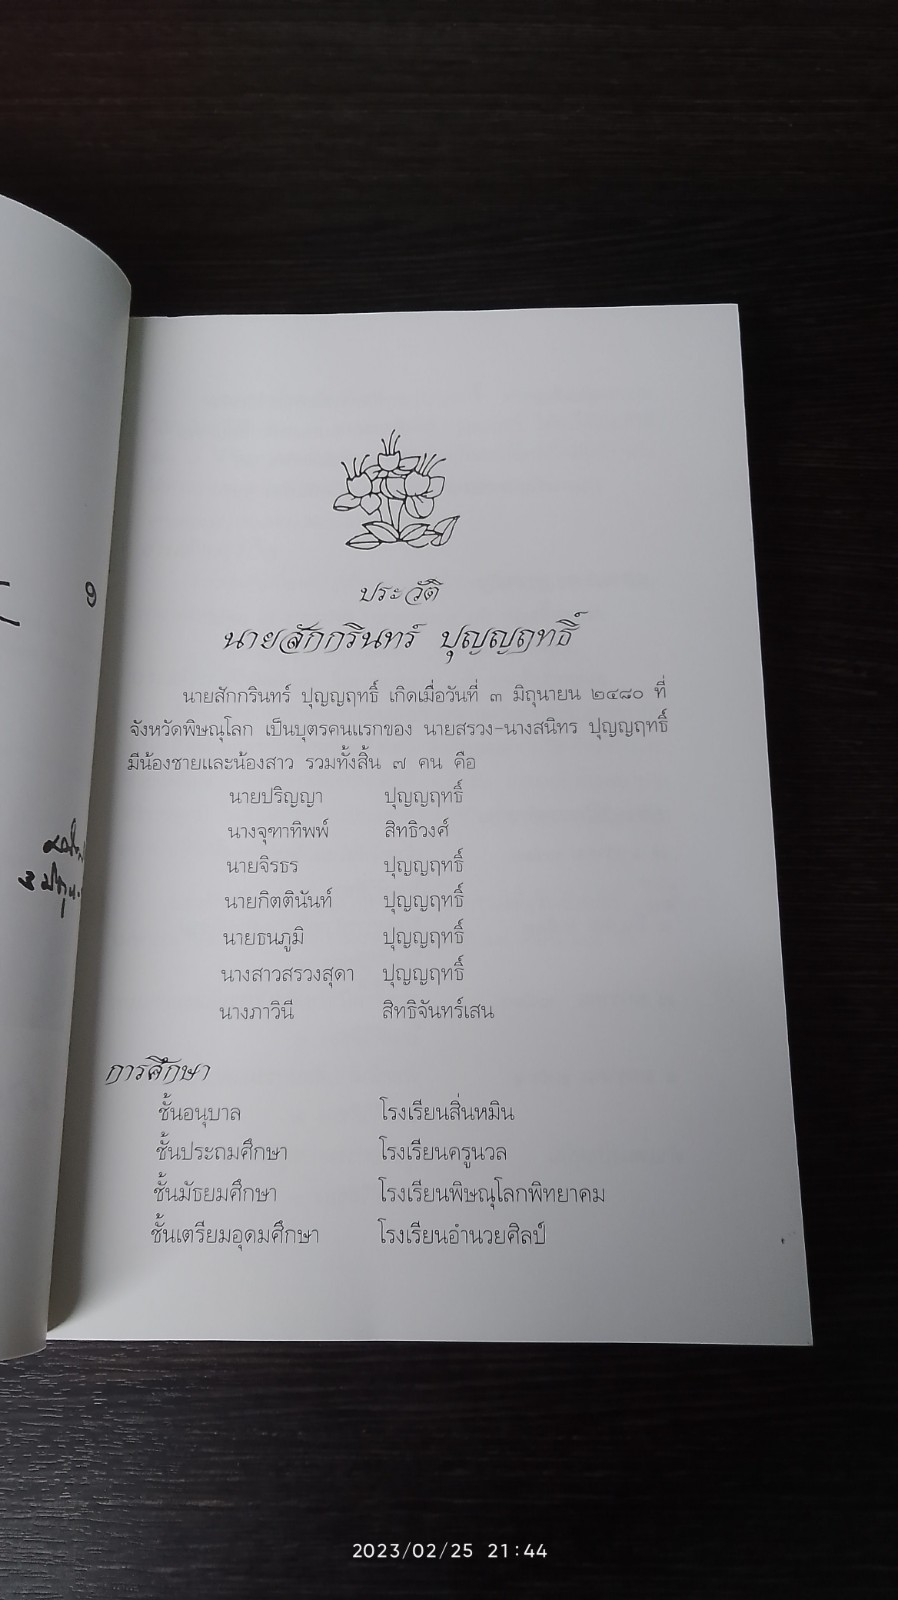 ประวัติ
นายสักกรินทร์ ปุญญฤทธิ์
นายสักกรินทร์ ปุญญฤทธิ์ เกิดเมื่อวันที่ ๓ มิถุนายน ๒๔๘๐ ที่
จังหวัดพิษณุโลก เป็นบุตรคนแรกของ นายสรวง-นางสนิทร ปุญญฤทธิ์
มีน้องชายและน้องสาว รวมทั้งสิ้น ๗ คน คือ
นายปริญญา ปุญญฤทธิ์
นางจุฑาทิพพ์ สิทธิวงศ์
นายจิรธร ปุญญฤทธิ์
นายกิตตินันท์ ปุญญฤทธิ์
นายธนภูมิ ปุญญฤทธิ์
นางสาวสรวงสุดา ปุญญฤทธิ์
นางภาวินี สิทธิจันทร์เสน
การศึกษา
ชั้นอนุบาล โรงเรียนสิ่นหมิน
ชั้นประถมศึกษา โรงเรียนครูนวล
ชั้นมัธยมศึกษา โรงเรียนพิษณุโลกพิทยาคม
ชั้นเตรียมอุดมศึกษา โรงเรียนอำนวยศิลป์
2023/02/25 21:44